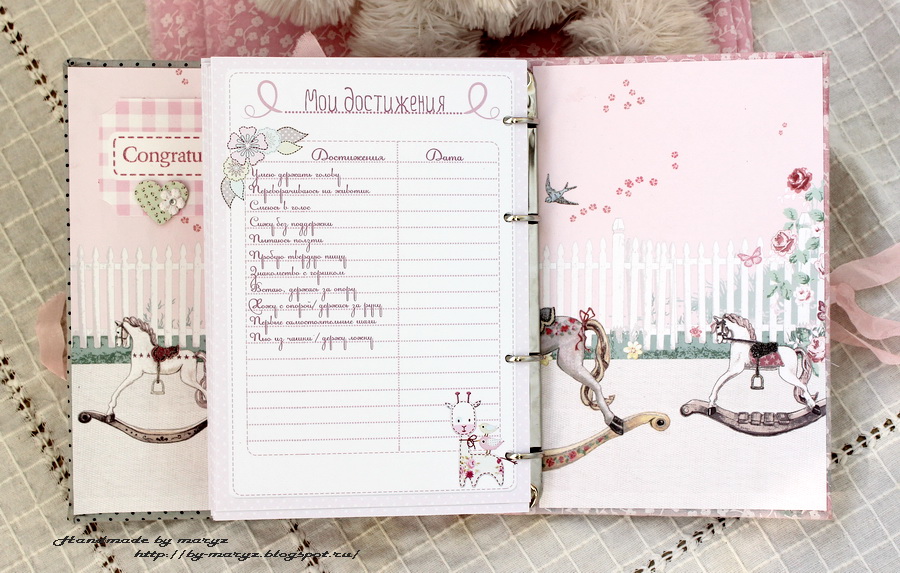 Congratu
Мои достижения
Достижения Дата
Умею держать голову
Переворачиваюсь на животик
Смеюсь в голос
Сижу без поддержки
Пытаюсь ползти
Пробую твердую пищу
Знакомство с горшком
Встаю, держась за опору
Хожу с опорой/ держась за руку
Первые самостоятельные шаги
Пью из чашки / держу ложку
Handmade by maryz
http://by-maryz.blogspot.ru/